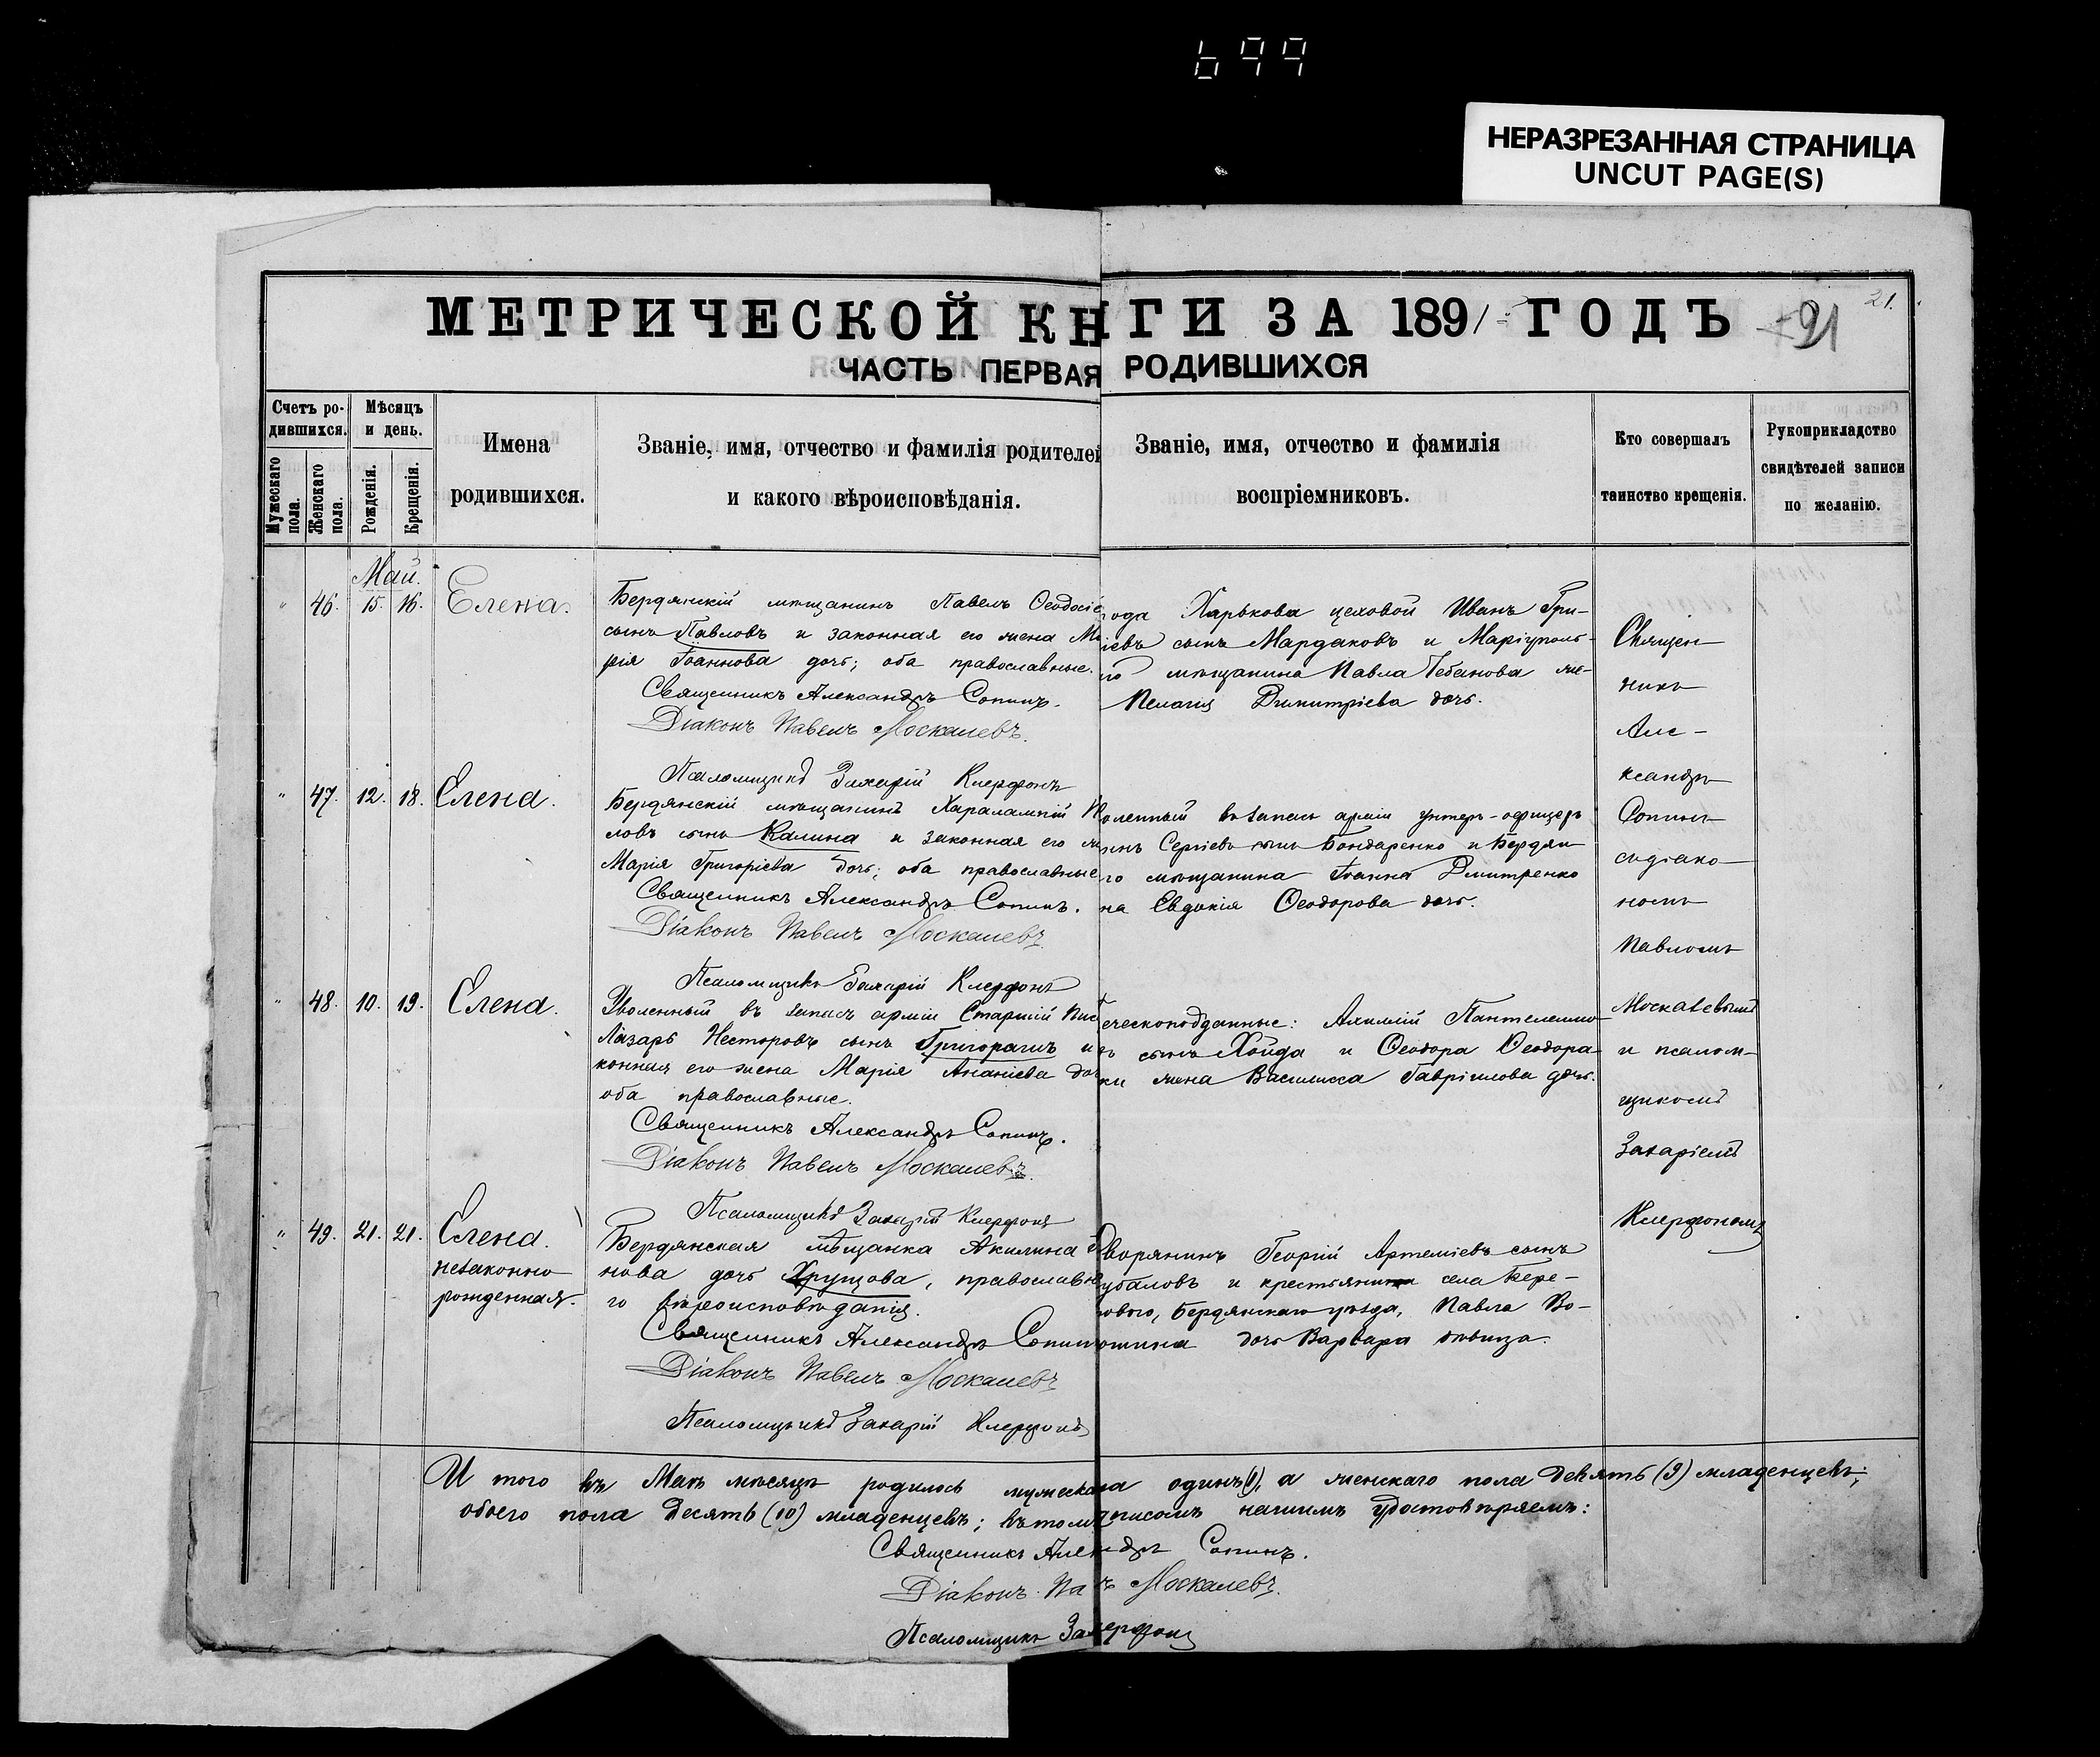 699
НЕРАЗРЕЗАННАЯ СТРАНИЦА
UNCUT PAGE(S)
21.
МЕТРИЧЕСКОЙ КН ГИ ЗА 1891 ГОДЪ 91
ЧАСТЬ ПЕРВАЯ РОДИВШИХСЯ
Счетъ ро-
дившихся.
Мужескаго пола.
Женскаго пола.
Мѣсяцъ
и день.
Рожденія.
Крещенія.
Имена
родившихся.
Званіе, имя, отчество и фамилія родителей
и какого вѣроисповѣданія.
Званіе, имя, отчество и фамилія
воспріемниковъ.
Кто совершалъ
таинство крещенія.
Рукоприкладство
свидѣтелей записи
по желанію.
Май.
" 46. 15. 16. Елена.
Бердянскій мѣщанинъ Павелъ Ѳеодосіе
сынъ Павловъ и законная его жена Ма
рія Іоаннова дочь; оба православные.
Священникъ Александръ Сопинъ.
Діаконъ Павелъ Москалевъ.
Псаломщикъ Захарій Клерфонъ
рода Харькова цеховой Иванъ Гри-
іевъ сынъ Мардаковъ и Маріуполь-
го мѣщанина Павла Чебанова же-
Пелагія Димитріева дочь.
" 47. 12. 18. Елена.
Бердянскій мѣщанинъ Харалампій
ловъ сынъ Калина и законная его
Марія Григоріева дочь; оба православные
Священникъ Александръ Сопинъ.
Діаконъ Павелъ Москалевъ
Псаломщикъ Захарій Клерфонъ
воленный въ запасъ арміи унтеръ-офицеръ
инъ Сергіевъ сынъ Бондаренко и Бердян
го мѣщанина Іоанна Дмитренко
на Евдокія Ѳеодорова дочь.
" 48. 10. 19. Елена.
Уволенный въ запасъ арміи Старшій Пис
Лазарь Несторовъ сынъ Григорашъ и
конная его жена Марія Ананіева доч
оба православные.
Священникъ Александръ Сопинъ.
Діаконъ Павелъ Москалевъ.
Псаломщикъ Захарій Клерфонъ
реческоподданные: Пантелеимо
въ сынъ Хойда и Ѳеодора Ѳеодора-
ки жена Василисса Гавріилова дочь.
" 49. 21. 21. Елена.
незаконно
рожденная.
Бердянская мѣщанка Акилина
нова дочь Хрущова, православна
го вѣроисповѣданія.
Священникъ Александръ Сопинъ
Діаконъ Павелъ Москалевъ
Псаломщикъ Захарій Клерфонъ
Дворянинъ Георгій Артеміевъ сынъ
убаловъ и крестьянина села Бере-
ового, Бердянскаго уѣзда, Павла Во-
ошина дочь Варвара дѣвица.
Священ-
никъ
Але-
ксандръ
Сопинъ
съ діако-
номъ
Павломъ
Москалевымъ
и псалом-
щикомъ
Захаріемъ
Клерфономъ
И того въ Маѣ мѣсяцѣ родилось мужеска ла одинъ (1), а женскаго пола девять (9) младенцевъ;
обоего пола десять (10) младенцевъ; въ томъ дписомъ нашимъ удостовѣряемъ:
Священникъ Алек ндръ Сопинъ.
Діаконъ Па ъ Москалевъ.
Псаломщикъ За ерфонъ